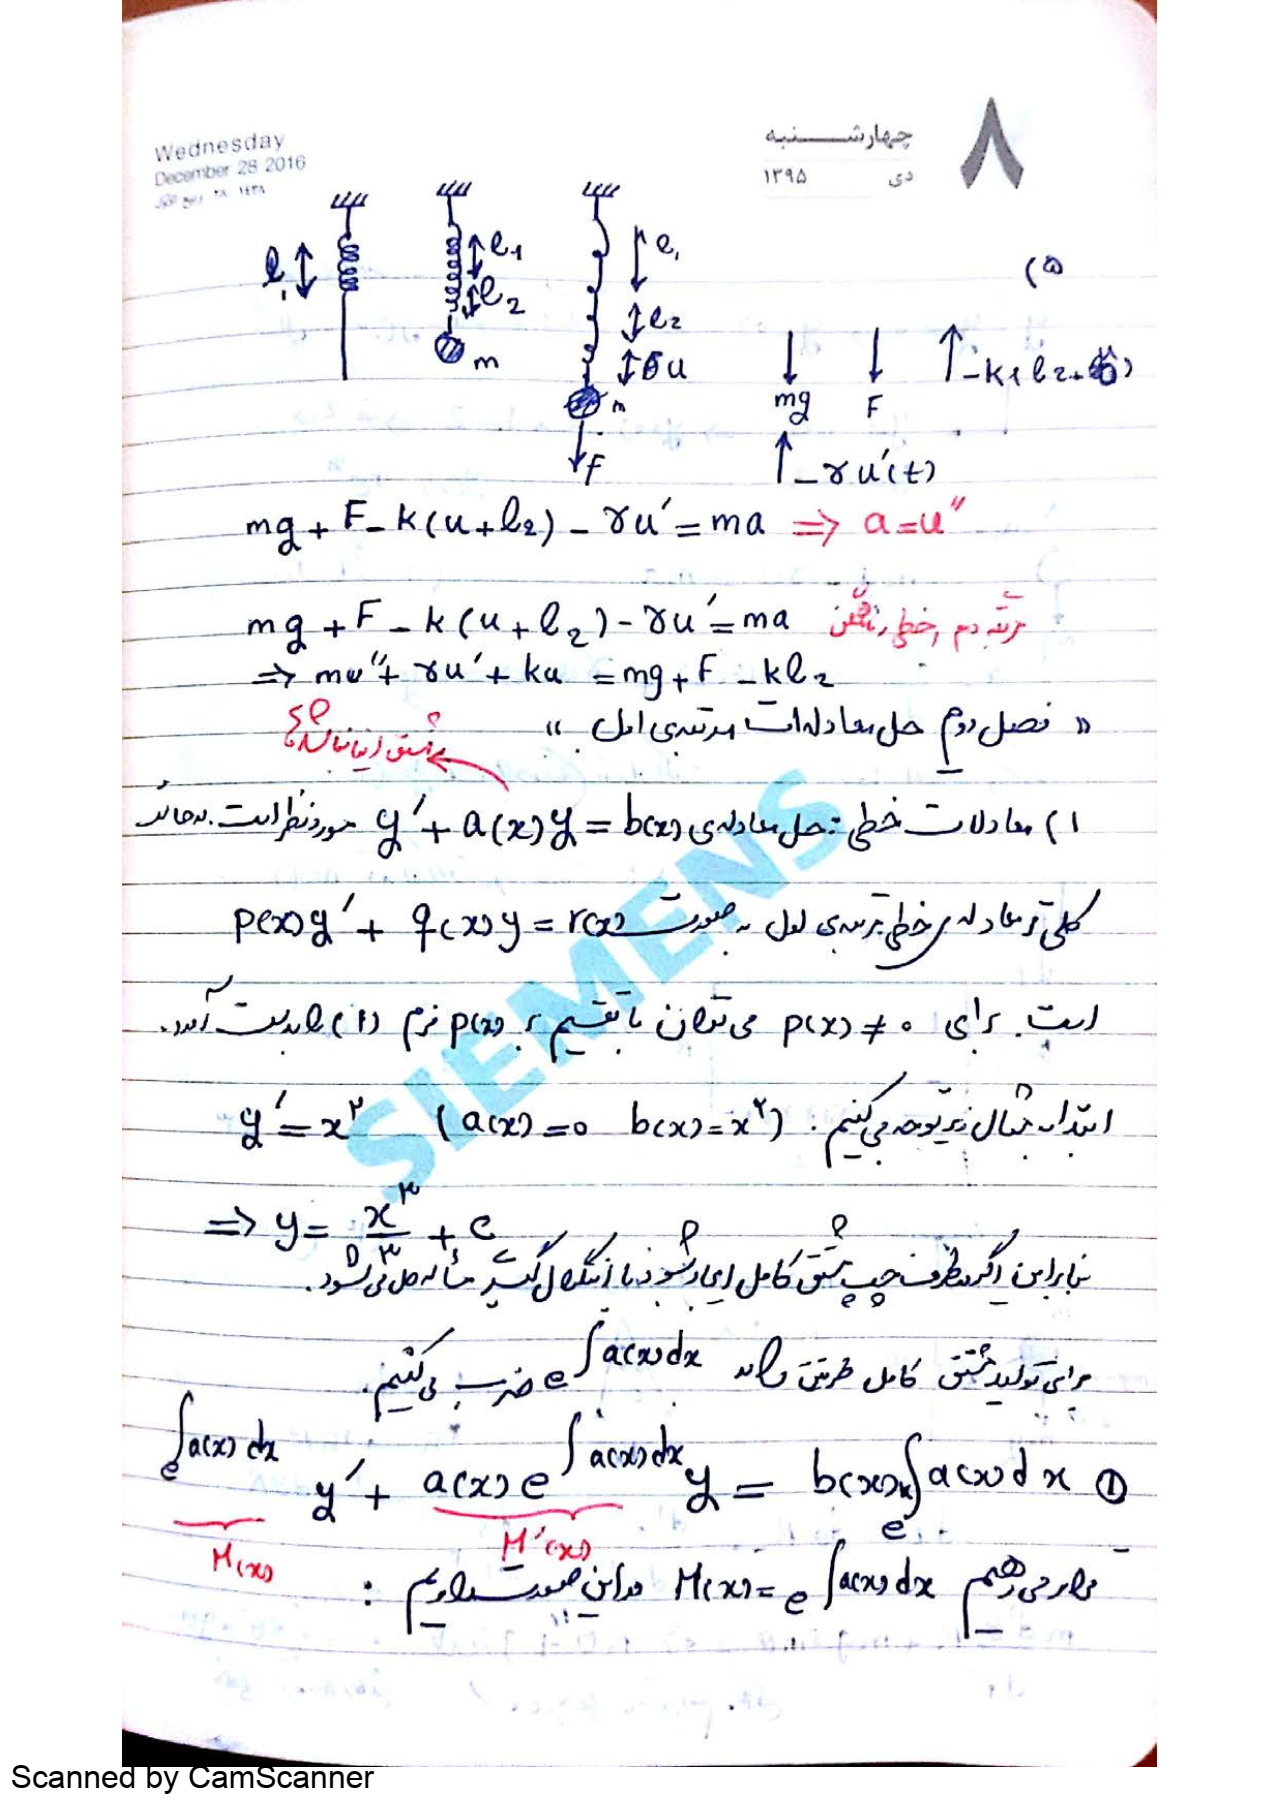 Wednesday
December 28 2016
چهارشنبه
دی ۱۳۹۵
۸
۵)
l₁
l₁
l₂
m
l₁
l₂
u
m
F
mg
F
-k(l₂+u)
-γu′(t)
mg + F - k(u+l₂) - γu′ = ma ⇒ a = u″
mg + F - k(u+l₂) - γu′ = ma مرتبه دوم، خطی، ناهمگن
⇒ mu″ + γu′ + ku = mg + F - kl₂
« فصل دوم حل معادلات مرتبه‌ی اول »
۱) معادلات خطی: حل معادله‌ی y′ + a(x)y = b(x) مورد نظر است. به حالت
کلی‌تر معادله‌ی خطی مرتبه‌ی اول به صورت p(x)y′ + q(x)y = r(x)
است. برای p(x) ≠ ۰ می‌توان با تقسیم بر p(x) فرم (۱) را بدست آورد.
ابتدا به مثال زیر توجه می‌کنیم: y′ = x² (a(x) = 0 b(x) = x²)
⇒ y = x³/۳ + c
بنابراین اگر طرف چپ مشتق کامل ایجاد شود با انتگرال‌گیری مسأله حل می‌شود.
برای تولید مشتق کامل طرفین را به e^∫a(x)dx ضرب می‌کنیم.
e^∫a(x)dx y′ + a(x)e^∫a(x)dx y = b(x) e^∫a(x)dx ①
M(x) M′(x)
قرار می‌دهیم M(x) = e^∫a(x)dx در این صورت داریم :
SIEMENS
Scanned by CamScanner